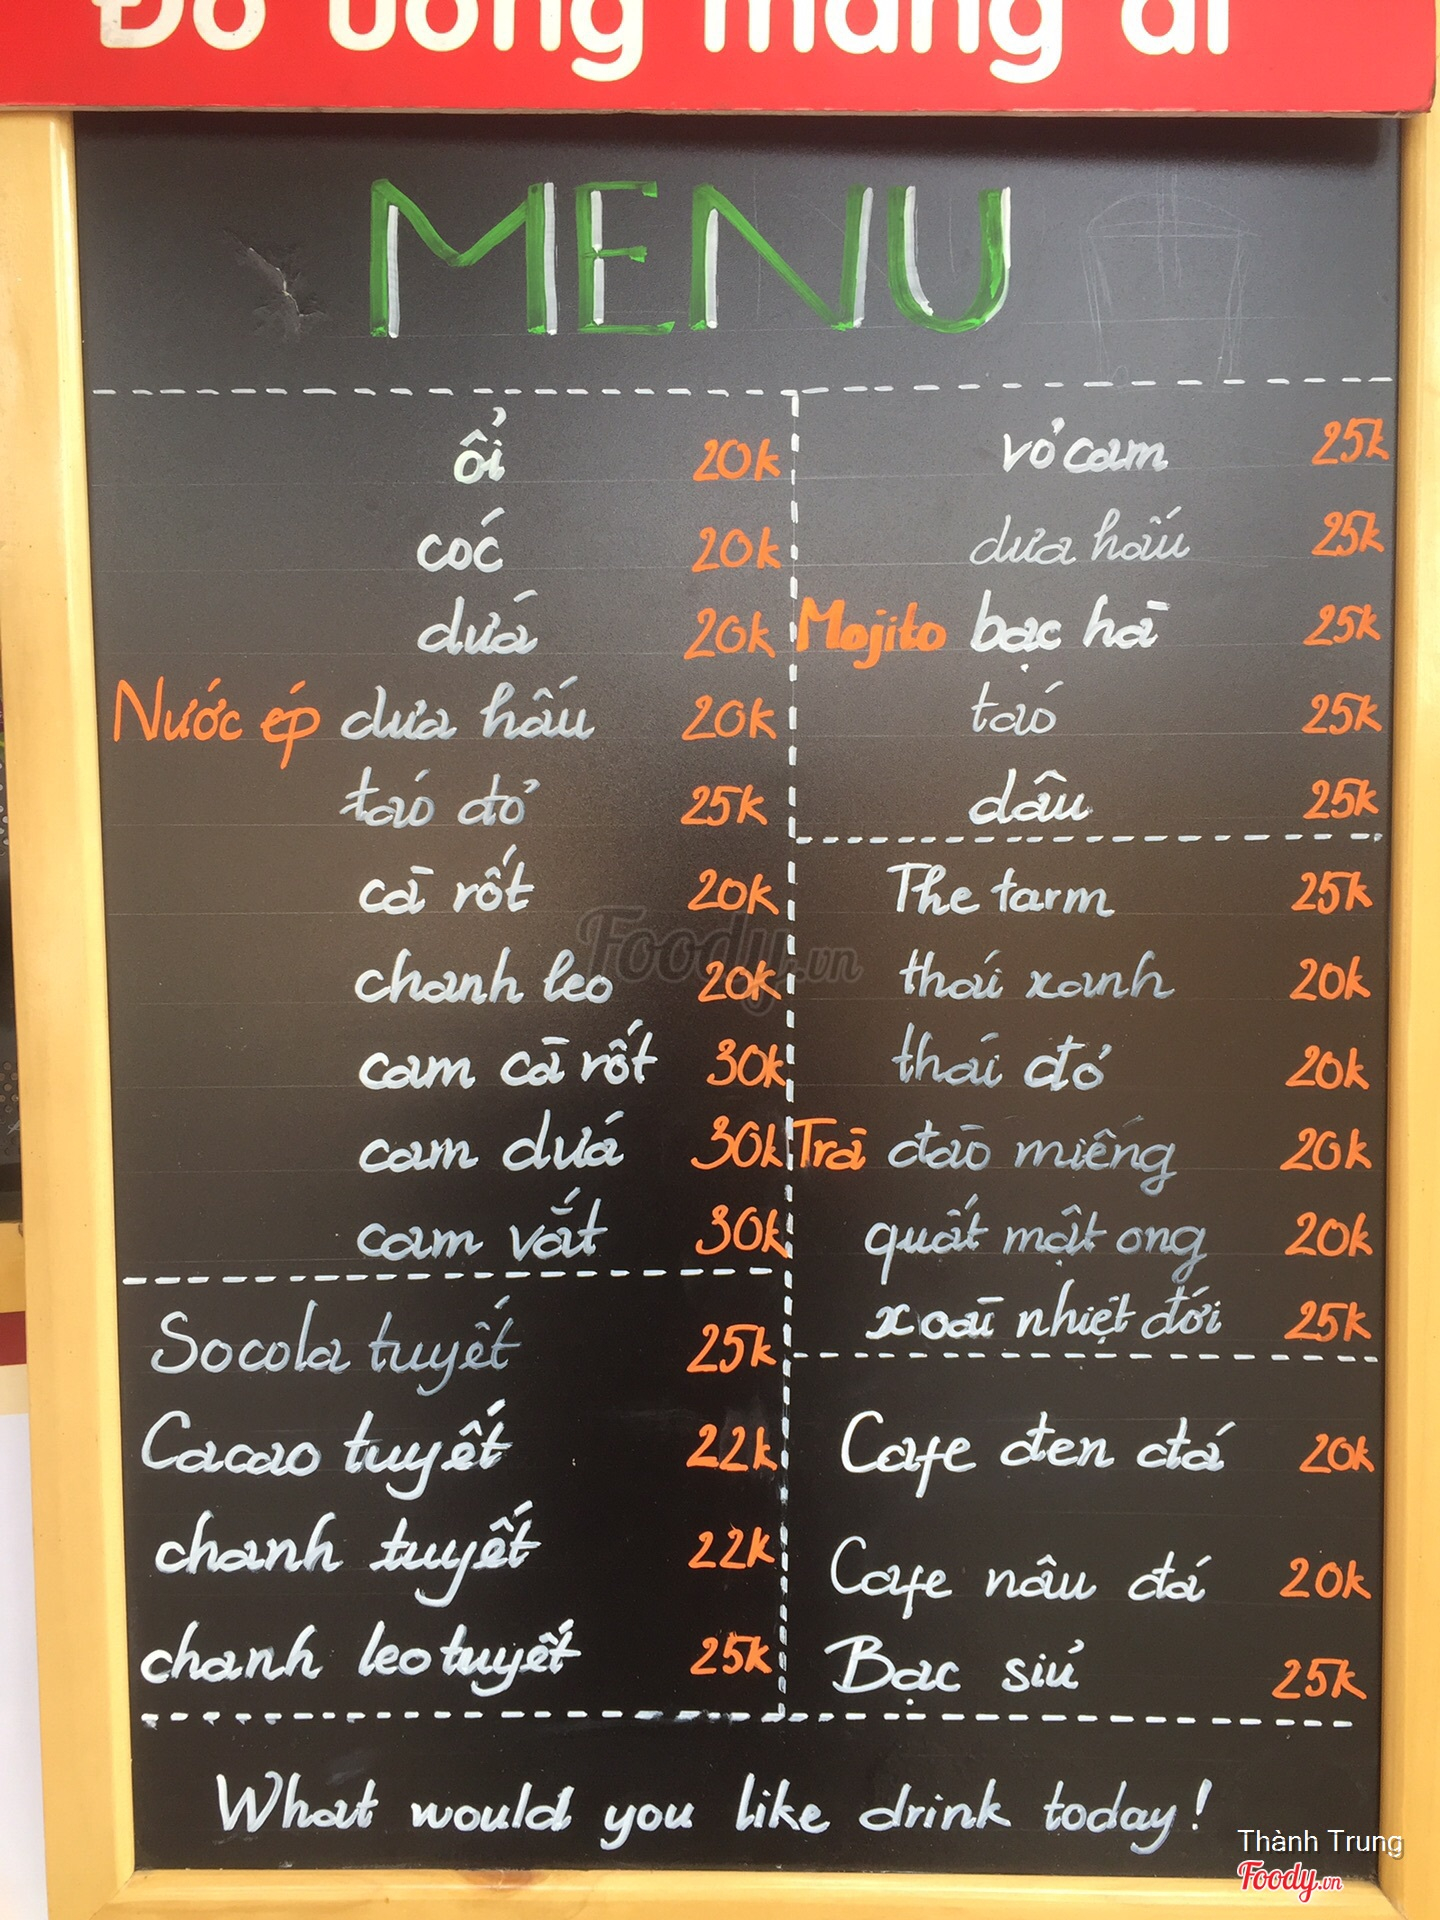 Đồ uống mang đi
MENU
ổi 20k
cóc 20k
dứa 20k
Nước ép dưa hấu 20k
táo đỏ 25k
cà rốt 20k
chanh leo 20k
cam cà rốt 30k
cam dứa 30k
cam vắt 30k
Socola tuyết 25k
Cacao tuyết 22k
chanh tuyết 22k
chanh leo tuyết 25k
vỏ cam 25k
dưa hấu 25k
Mojito bạc hà 25k
táo 25k
dâu 25k
The tarm 25k
thái xanh 20k
thái đỏ 20k
Trà đào miếng 20k
quất mật ong 20k
xoài nhiệt đới 25k
Cafe đen đá 20k
Cafe nâu đá 20k
Bạc sỉu 25k
What would you like drink today!
Foody.vn
Thành Trung
Foody.vn